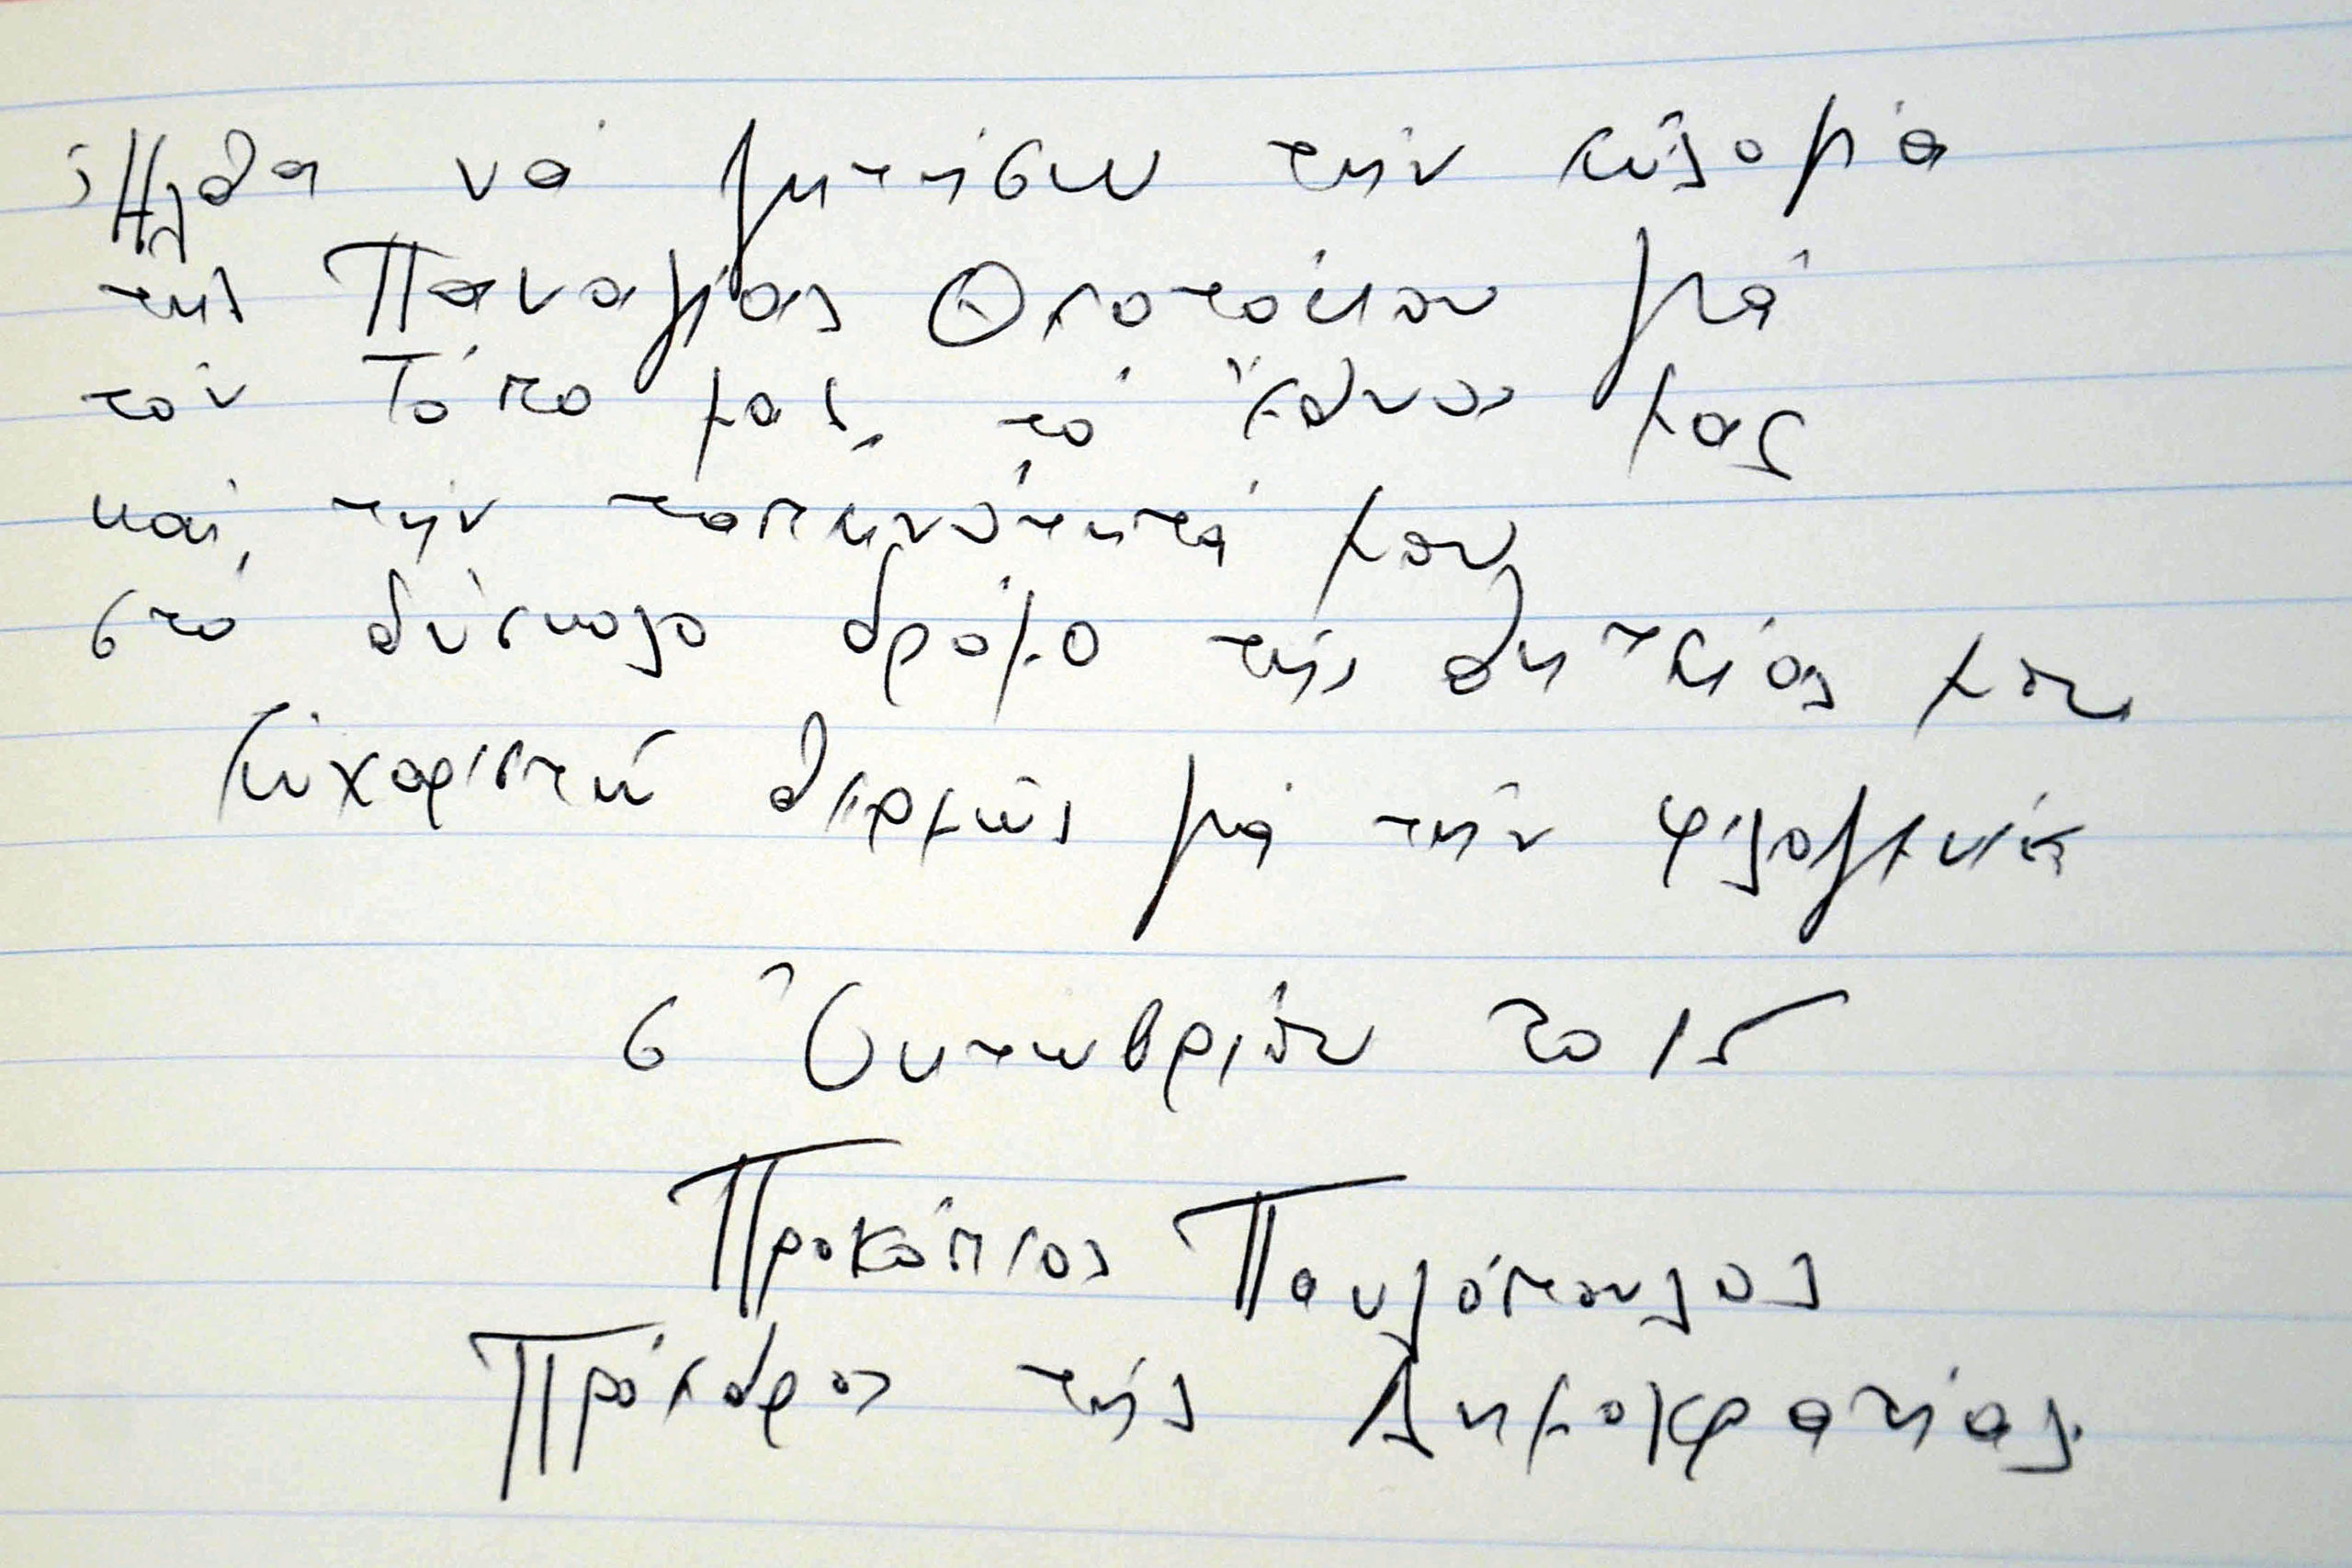 Ἦλθα νά ζητήσω τήν εὐλογία
τῆς Παναγίας Θεοτόκου γιά
τόν Τόπο μας, τό Ἔθνος μας
καί, τήν ταπεινότητά μου
στό δύσκολο δρόμο τῆς θητείας μου
Εὐχαριστῶ θερμῶς γιά τήν φιλοξενία
6 Ὀκτωβρίου 2015
Προκόπιος Παυλόπουλος
Πρόεδρος τῆς Δημοκρατίας.